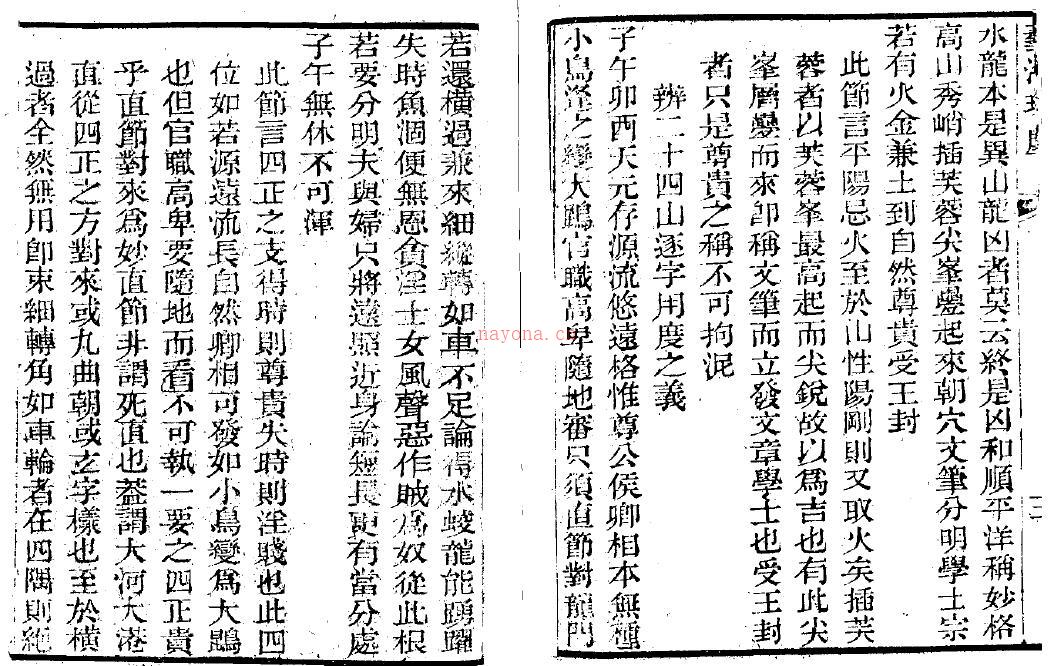 水龍本是異山龍凶者莫云終是凶和順平洋稱妙格
高山秀峭插芙蓉尖峯疊起來朝穴文筆分明學士宗
若有火金兼土到自然尊貴受王封
此節言平陽忌火至於山性陽剛則又取火矣插芙
蓉者以芙蓉峯最高起而尖銳故以爲吉也有此尖
峯層疊而來卽稱文筆而立發文章學士也受王封
者只是尊貴之稱不可拘泥
辨二十四山逐字用度之義
子午卯酉天元存源流悠遠格惟尊公侯卿相本無種
小鳥登之變大鵾官職高卑隨地審只須直節對龍門
若還橫過兼來細縱轉如車不足論得水蛟龍能踴躍
失時魚涸便無恩貪淫士女風聲惡作賊爲奴從此根
若要分明夫與婦只將遠照近身論短長更有當分處
子午無休不可渾
此節言四正之支得時則尊貴失時則淫賤也此四
位如若源遠流長自然卿相可發如小鳥變爲大鵾
也但官職高卑要隨地而看不可執一要之四正貴
乎直節對來爲妙直節非謂死值也蓋謂大河大港
直從四正之方對來或九曲朝或玄字樣也至於橫
過者全然無用卽東細轉角如車輪者在四隅則絕
nayona.cn